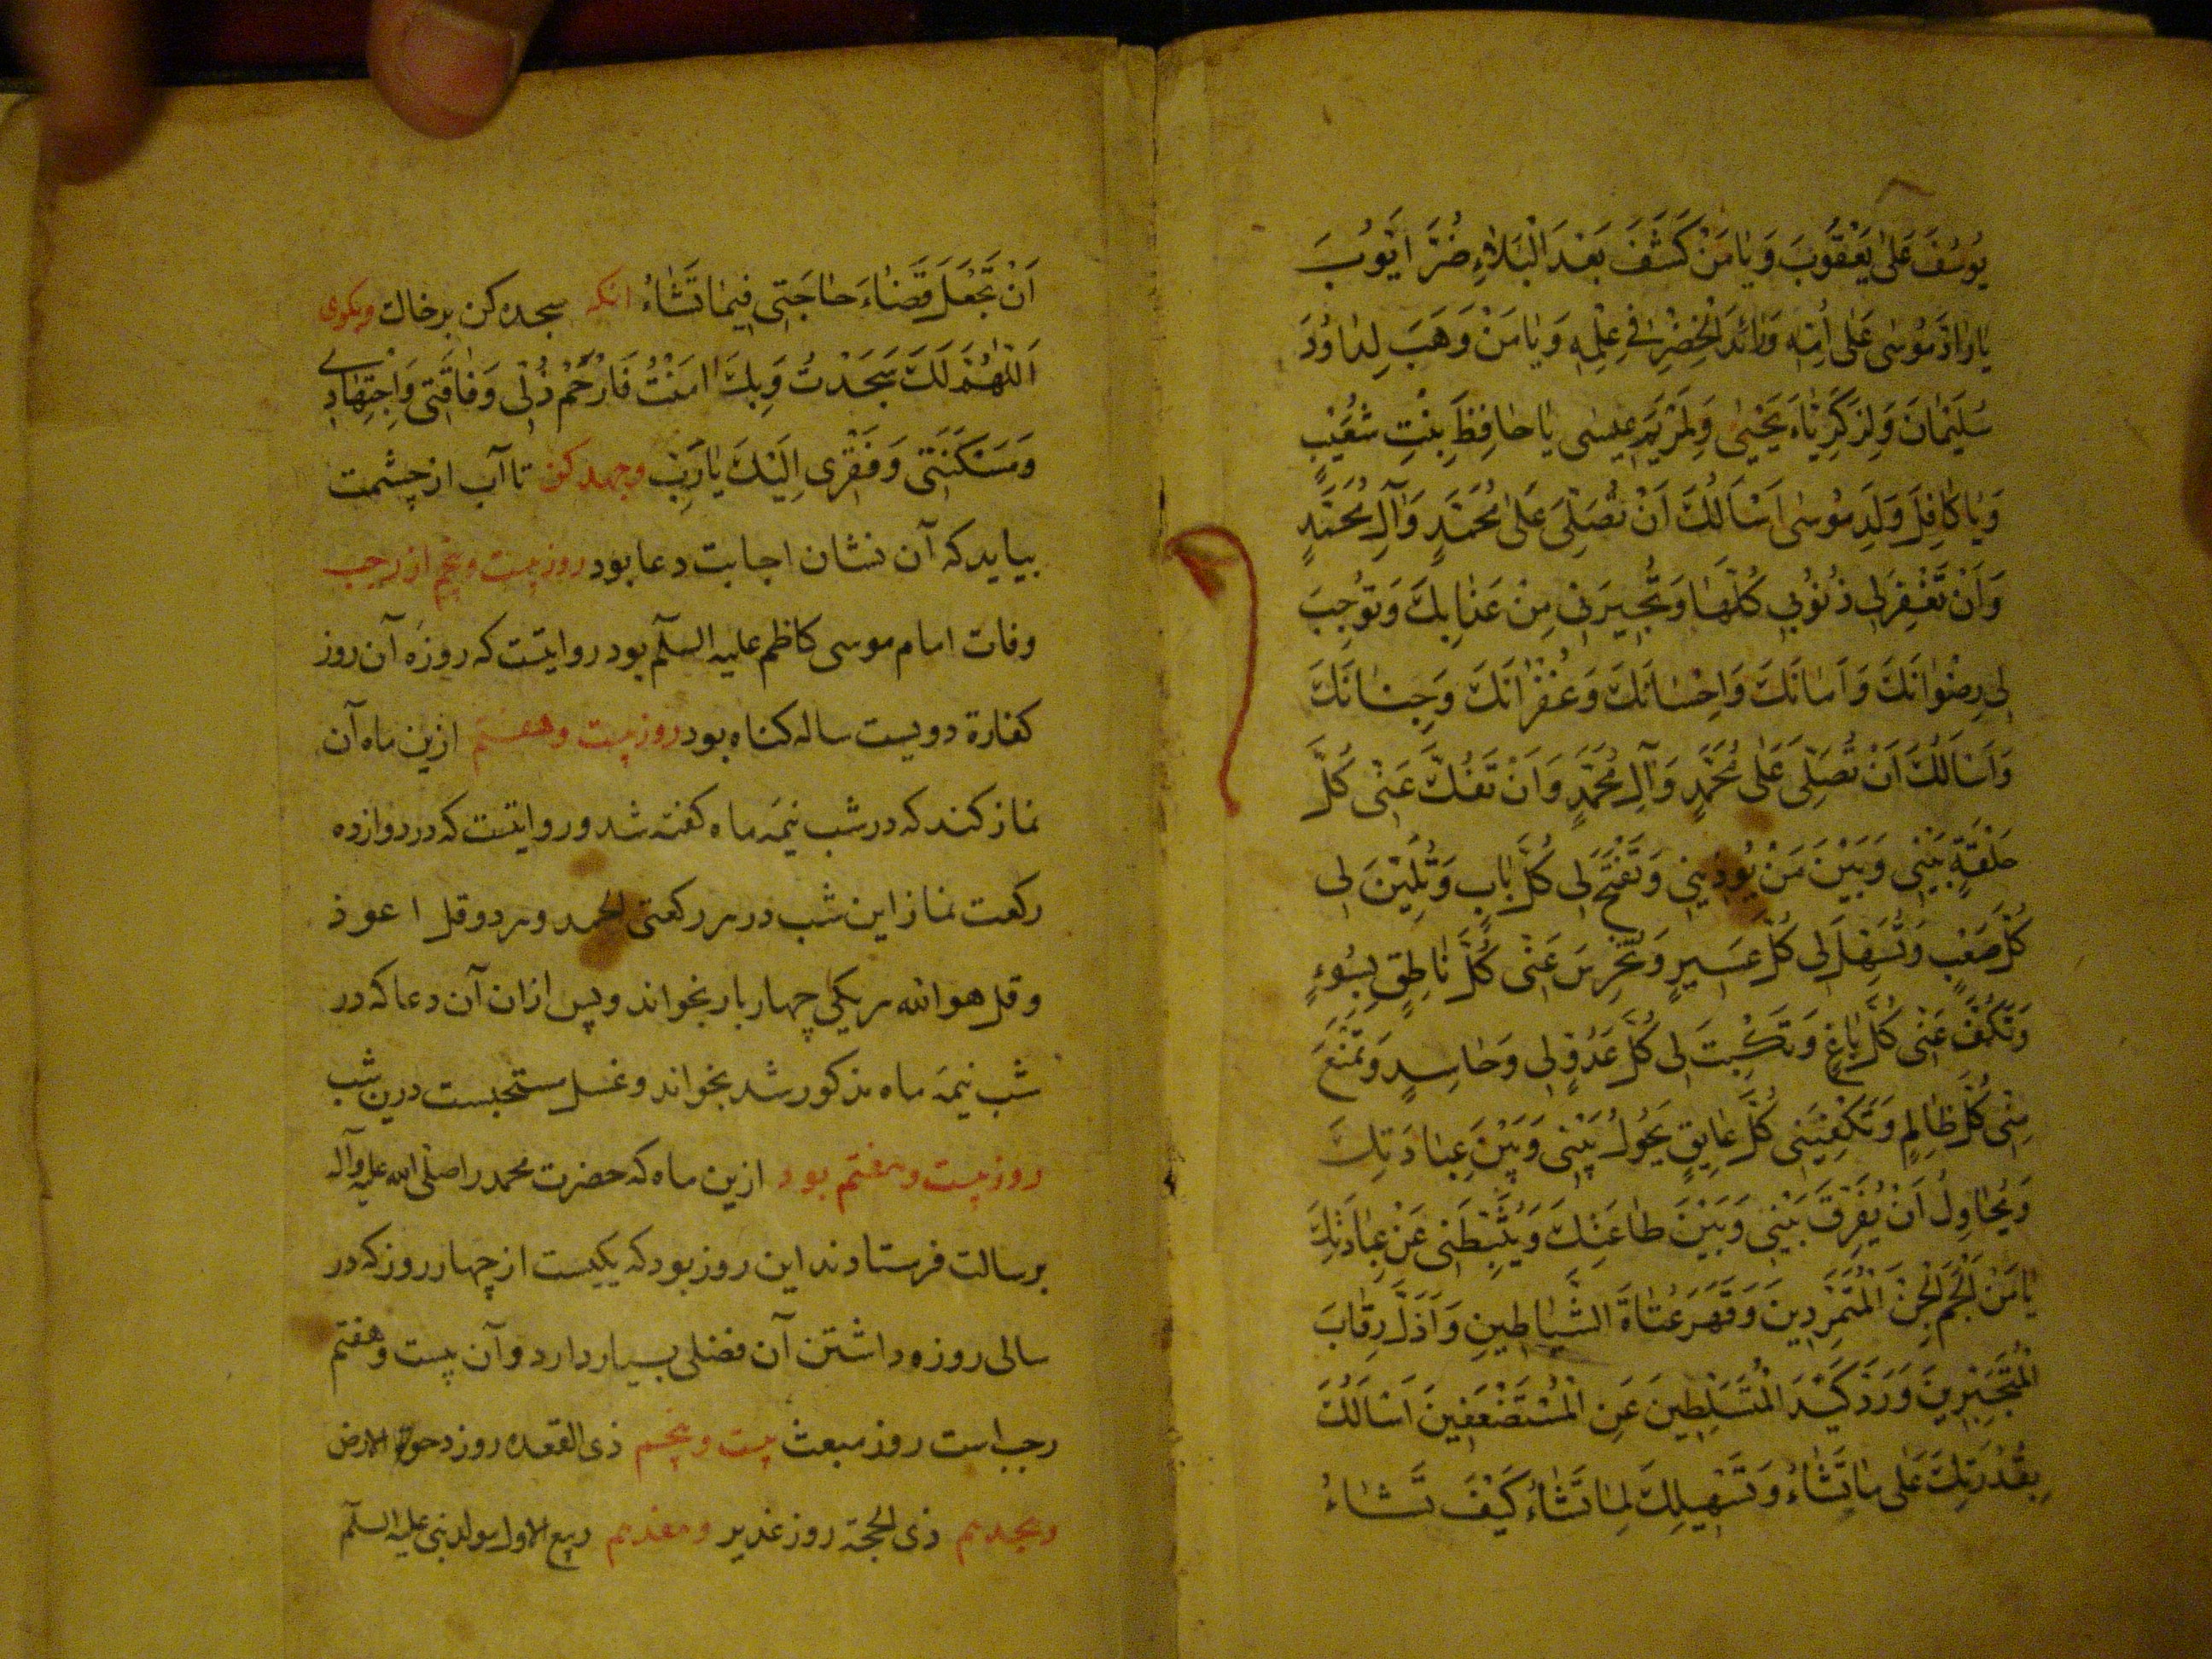 يُوسُفَ عَلىٰ يَعْقُوبَ وَيٰا مَنْ كَشَفَ بَعْدَ الْبَلاٰءِ ضُرَّ اَيُّوبَ
يٰا رٰادَّ مُوسٰى عَلىٰ اُمِّهِ وَزٰائِدَ الْخِضْرِ فِي عِلْمِهِ وَيٰا مَنْ وَهَبَ لِدٰاوُدَ
سُلَيْمٰانَ وَلِزَكَرِيّٰاءَ يَحْيىٰ وَلِمَرْيَمَ عِيسٰى يٰا حٰافِظَ بِنْتِ شُعَيْبٍ
وَيٰا كٰافِلَ وَلَدِ مُوسٰى اَسْأَلُكَ اَنْ تُصَلِّيَ عَلىٰ مُحَمَّدٍ وَآلِ مُحَمَّدٍ
وَاَنْ تَغْفِرَ لِي ذُنُوبِي كُلَّهٰا وَتُجِيرَنِي مِنْ عَذٰابِكَ وَتُوجِبَ
لِي رِضْوٰانَكَ وَاَمٰانَكَ وَاِحْسٰانَكَ وَغُفْرٰانَكَ وَجِنٰانَكَ
وَاَسْأَلُكَ اَنْ تُصَلِّيَ عَلىٰ مُحَمَّدٍ وَآلِ مُحَمَّدٍ وَاَنْ تَفُكَّ عَنِّى كُلَّ
حَلْقَةٍ بَيْنِي وَبَيْنَ مَنْ يُؤْذِينِي وَتَفْتَحَ لِى كُلَّ بٰابٍ وَتُلَيِّنَ لِى
كُلَّ صَعْبٍ وَتُسَهِّلَ لِى كُلَّ عَسِيرٍ وَتُخْرِسَ عَنِّى كُلَّ نٰاطِقٍ بِسُوءٍ
وَتَكُفَّ عَنِّى كُلَّ بٰاغٍ وَتَكْبِتَ لِى كُلَّ عَدُوٍّ لِى وَحٰاسِدٍ وَتَمْنَعَ
مِنِّى كُلَّ ظٰالِمٍ وَتَكْفِيَنِى كُلَّ عٰايِقٍ يَحُولُ بَيْنِى وَبَيْنَ عِبٰادَتِكَ
وَيُحٰاوِلُ اَنْ يُفَرِّقَ بَيْنِي وَبَيْنَ طٰاعَتِكَ وَيُثَبِّطَنِى عَنْ عِبٰادَتِكَ
يٰا مَنْ اَلْجَمَ الْجِنَّ الْمُتَمَرِّدِينَ وَقَهَرَ عُتٰاةَ الشَّيٰاطِينِ وَاَذَلَّ رِقٰابَ
الْمُتَجَبِّرِينَ وَرَدَّ كَيْدَ الْمُتَسَلِّطِينَ عَنِ الْمُسْتَضْعَفِينَ اَسْأَلُكَ
بِقُدْرَتِكَ عَلىٰ مٰا تَشٰاءُ وَتَسْهِيلِكَ لِمٰا تَشٰاءُ كَيْفَ تَشٰاءُ
اَنْ تَجْعَلَ قَضٰاءَ حٰاجَتِى فِيمٰا تَشٰاءُ انكه سجده كن بر خاك وبكوى
اَللّٰهُمَّ لَكَ سَجَدْتُ وَبِكَ اٰمَنْتُ فَارْحَمْ ذُلِّى وَفٰاقَتِى وَاجْتِهٰادِى
وَمَسْكَنَتِى وَفَقْرِى اِلَيْكَ يٰا رَبِّ وجهد كن تا آب از چشمت
بيايد كه آن نشان اجابت دعا بود روز بيست وپنجم از رجب
وفات امام موسى كاظم عليه السلم بود روايتست كه روزهٔ آن روز
كفارة دويست ساله كناه بود روز بيست وهفتم ازين ماه آن
نماز كند كه در شب نيمهٔ ماه كفته شد وروايتست كه در دوازده
ركعت نماز اين شب در هر ركعتى الحمد وهر دو قل اعوذ
وقل هو الله هر يكى چهار بار بخواند وپس ازان آن دعا كه در
شب نيمهٔ ماه مذكور شد بخواند وغسل مستحبست درين شب
روز بيست وهفتم بود ازين ماه كه حضرت محمد را صلى الله عليه وآله
برسالت فرستادند اين روز بود كه يكيست از چهار روز كه در
سالى روزه داشتن آن فضلى بسيار دارد وآن بيست وهفتم
رجب است روز مبعث بيست وپنجم ذى القعده روز دحو الارض
وهجدهم ذى الحجة روز غدير وهفدهم ربيع الاول مولد نبى عليه السلم